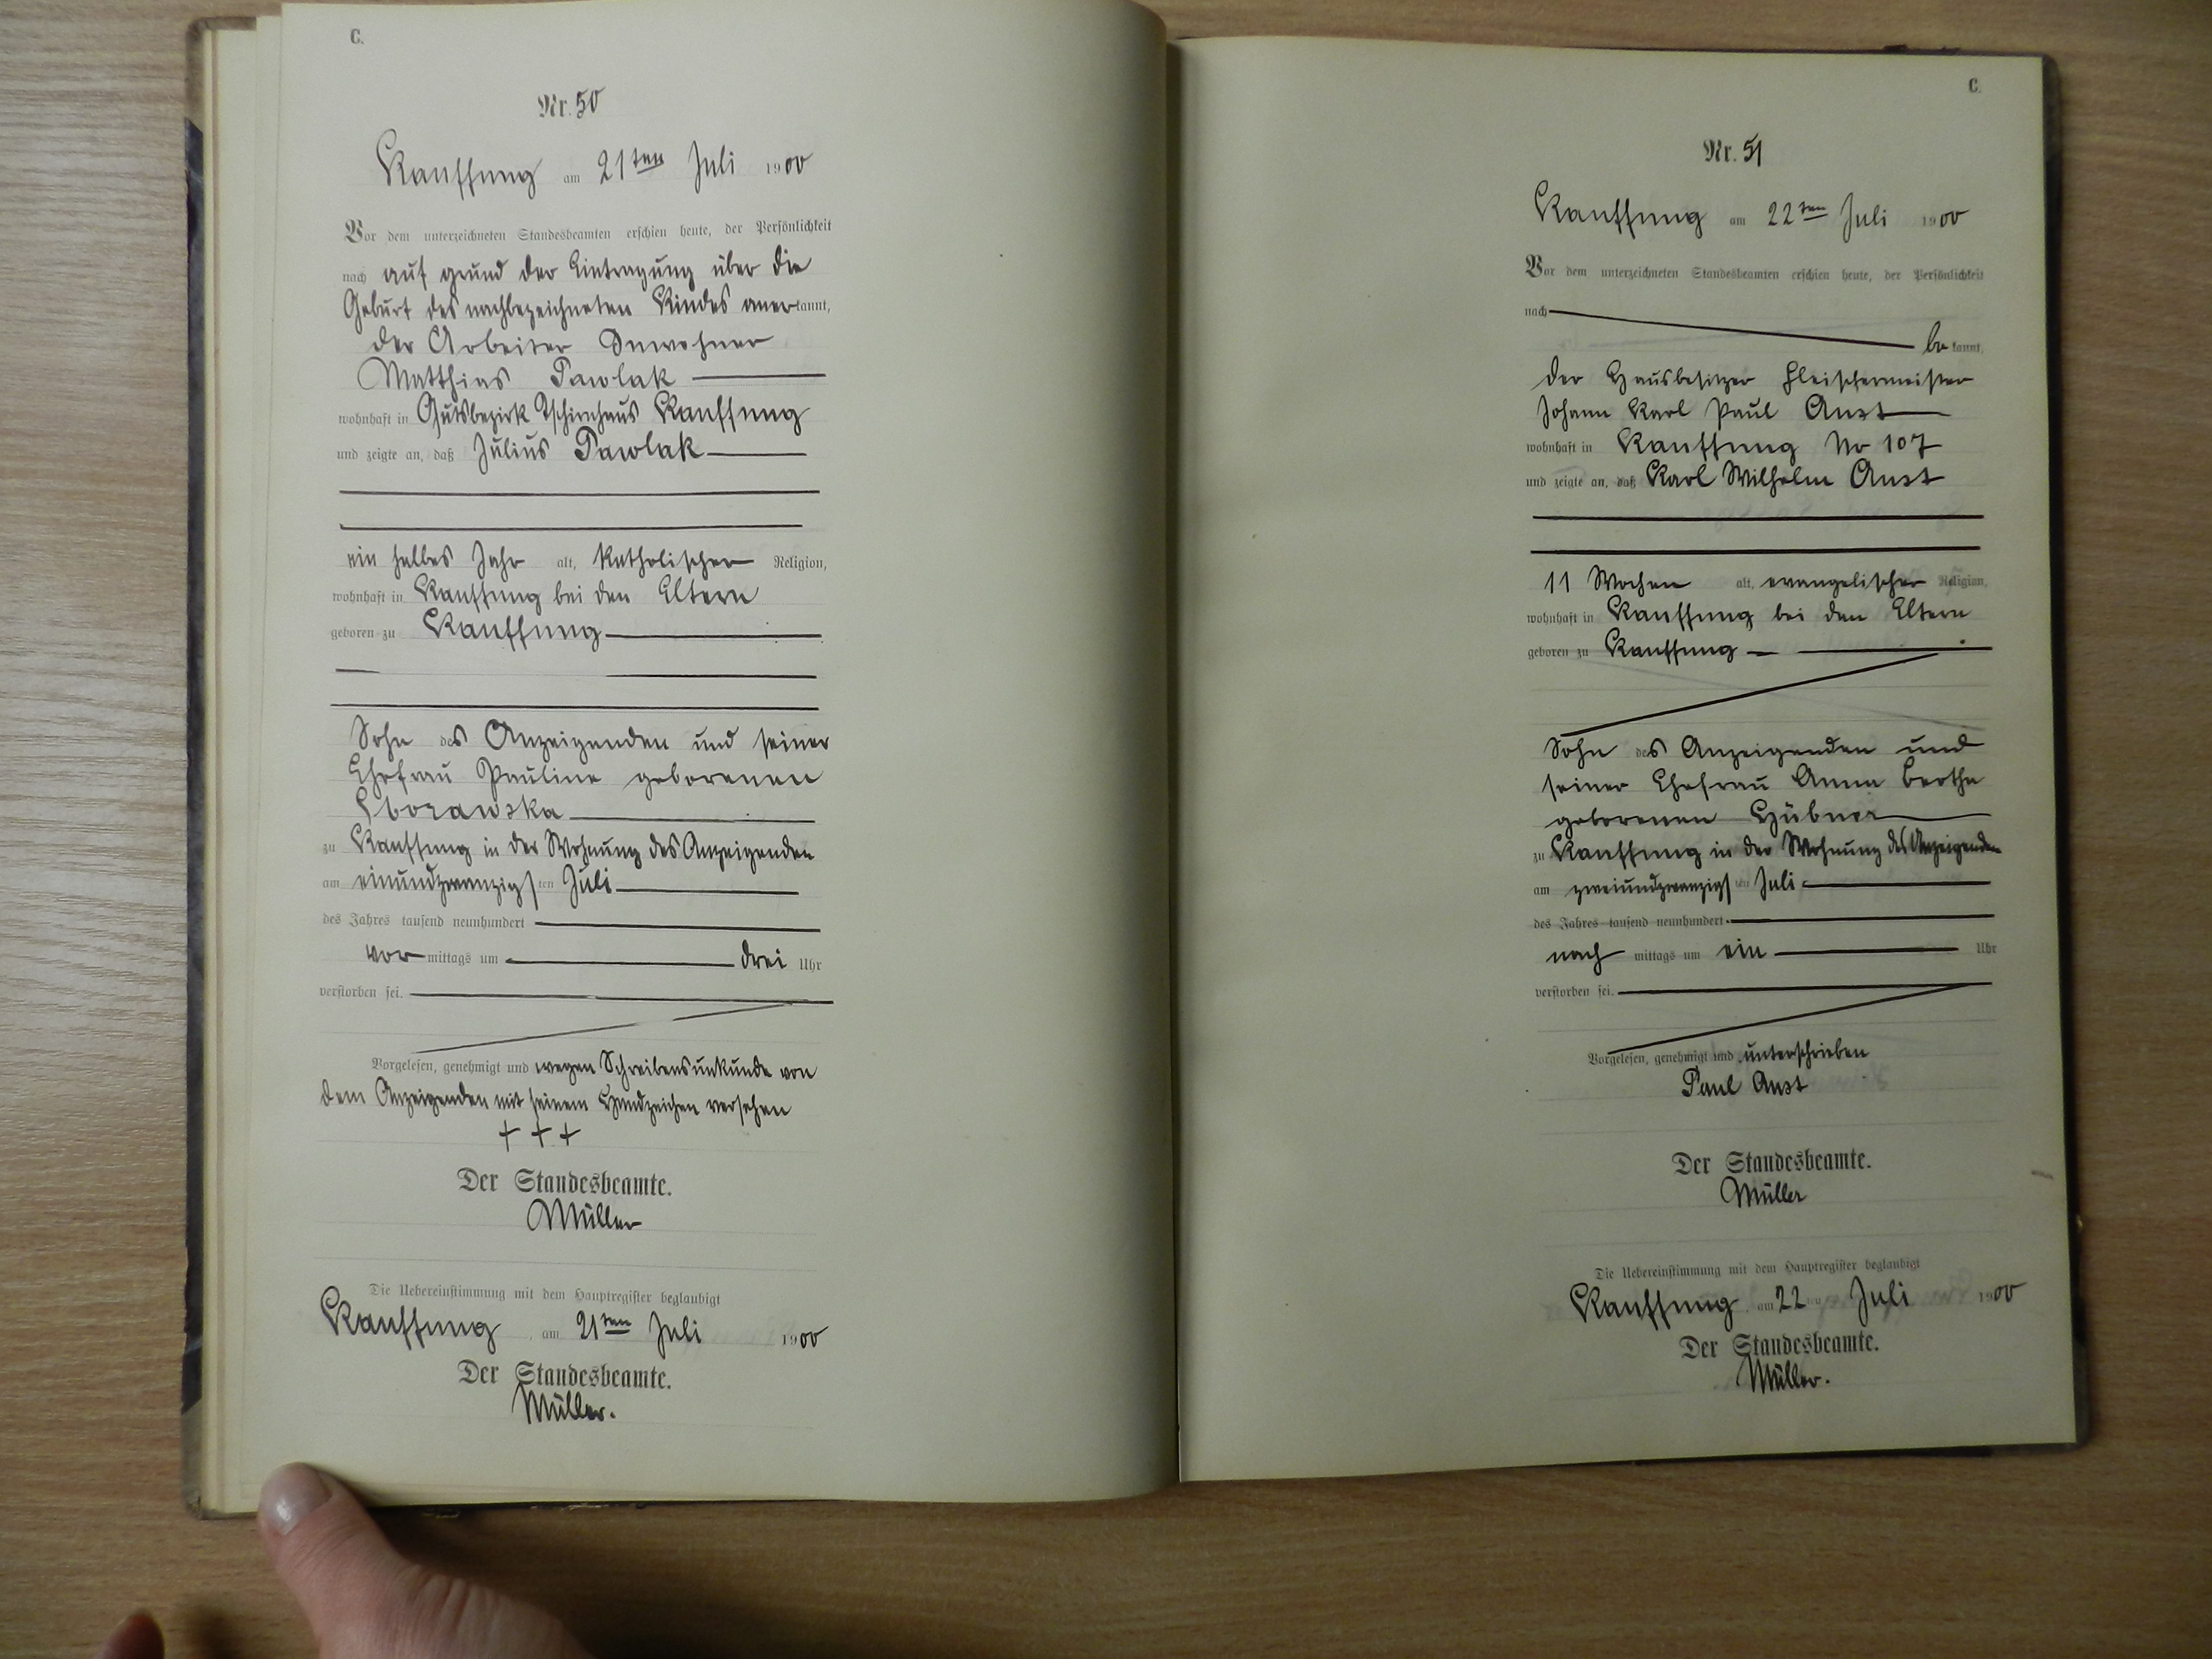 C.
Nr. 50
Kauffung am 21ten Juli 1900
Vor dem unterzeichneten Standesbeamten erschien heute, der Persönlichkeit
nach auf grund der Eintragung über die
Geburt des nachbezeichneten Kindes anerkannt,
der Arbeiter Inwohner
Matthias Pawlak
wohnhaft in Gutsbezirk Tschirnhaus Kauffung
und zeigte an, daß Julius Pawlak
ein halbes Jahr alt, katholischer Religion,
wohnhaft in Kauffung bei den Eltern
geboren zu Kauffung
Sohn des Anzeigenden und seiner
Ehefrau Pauline geborenen
zu Kauffung in der Wohnung des Anzeigenden
am einundzwanzigsten Juli
des Jahres tausend neunhundert
vor mittags um drei Uhr
verstorben sei.
Vorgelesen, genehmigt und wegen Schreibensunkunde von
dem Anzeigenden mit seinem Handzeichen versehen
+ + +
Der Standesbeamte.
Müller
Die Uebereinstimmung mit dem Hauptregister beglaubigt
Kauffung, am 21ten Juli 1900
Der Standesbeamte.
Müller.
C.
Nr. 51
Kauffung am 22ten Juli 1900
Vor dem unterzeichneten Standesbeamten erschien heute, der Persönlichkeit
nach
be kannt,
der Hausbesitzer Fleischermeister
Johann Karl Paul Aust
wohnhaft in Kauffung No 107
und zeigte an, daß Karl Wilhelm Aust
11 Wochen alt, evangelischer Religion,
wohnhaft in Kauffung bei den Eltern
geboren zu Kauffung
Sohn des Anzeigenden und
seiner Ehefrau Anna Bertha
geborenen Hübner
zu Kauffung in der Wohnung des Anzeigenden
am zweiundzwanzigsten Juli
des Jahres tausend neunhundert
nach mittags um ein Uhr
verstorben sei.
Vorgelesen, genehmigt und unterschrieben
Paul Aust
Der Standesbeamte.
Müller
Die Uebereinstimmung mit dem Hauptregister beglaubigt
Kauffung, am 22ten Juli 1900
Der Standesbeamte.
Müller.